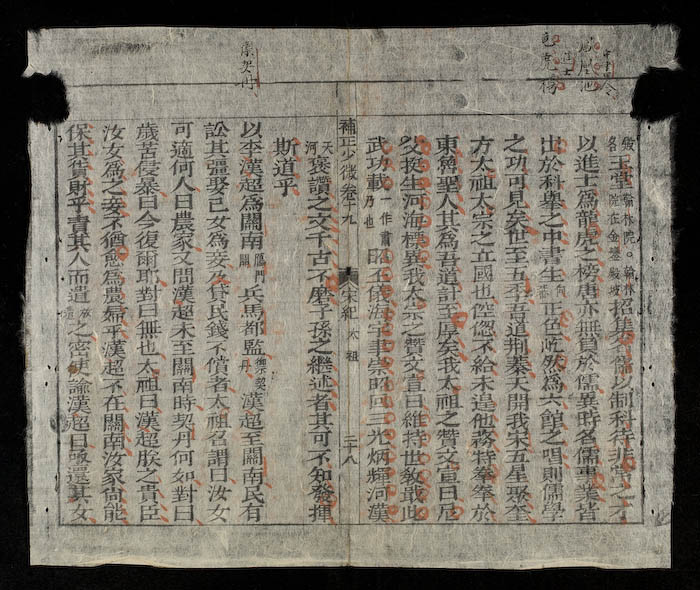 玉堂翰林院○翰林院在金鑾殿坡招集名儒以制科待非常之才
以進士爲龍虎之榜唐亦無負於儒異時名儒事業皆
出於科舉之中書生正色屹然爲六館之唱則儒學
之功可見矣世至五季吾道荆蓁天開我宋五星聚奎
方太祖太宗之立國也倥偬不給未遑他務特拳拳於
東魯聖人其爲吾道計至矣我太祖之賛文宣曰尼
父挺生河海標異我太宗之賛文宣曰維持世敎敢此
武功載一作肅乃也昭丕儀海宇聿崇昭回三光炳輝河漢
補正少微卷十九 宋紀 太祖 三十八
天河褒讃之文千古不磨子孫之繼述者其可不知發揮
斯道乎
禦契丹
以李漢超爲關南鴈門關兵馬都監禦契丹漢超至關南民有
訟其彊娶己女爲妾及貸民錢不償者太祖召謂曰汝女
可適何人曰農家又問漢超未至關南時契丹何如對曰
歲苦侵暴曰今復爾耶對曰無也太祖曰漢超朕之貴臣
汝女爲之妾不猶愈爲農婦乎漢超不在關南汝家尙能
保其貲財乎責其人而遣放遣之密使諭漢超曰亟還其女